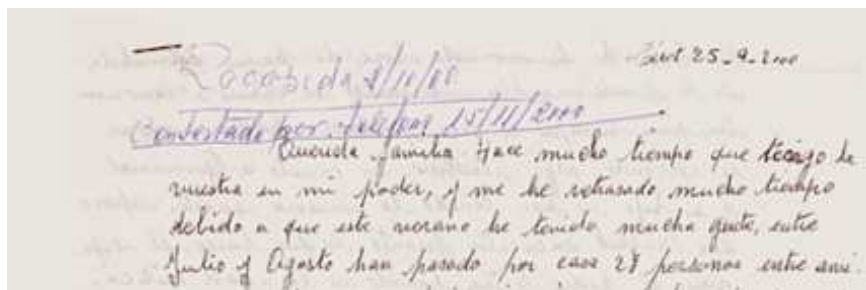 25-9-2000
Recibida 8/11/00
Contestada por teléfono 15/11/2000
Querida familia Hace mucho tiempo que tengo la
vuestra en mi poder, y me he retrasado mucho tiempo
debido a que este verano he tenido mucha gente, entre
Julio y Agosto han pasado por casa 27 personas entre ami